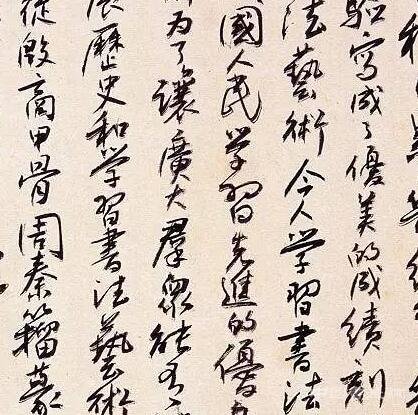 寫成了優美的成績
法藝術今人学習書法
國人民学習先進的優
為了讓廣大羣衆能
展歷史和学習書法藝術
從殷商甲骨周秦籀篆